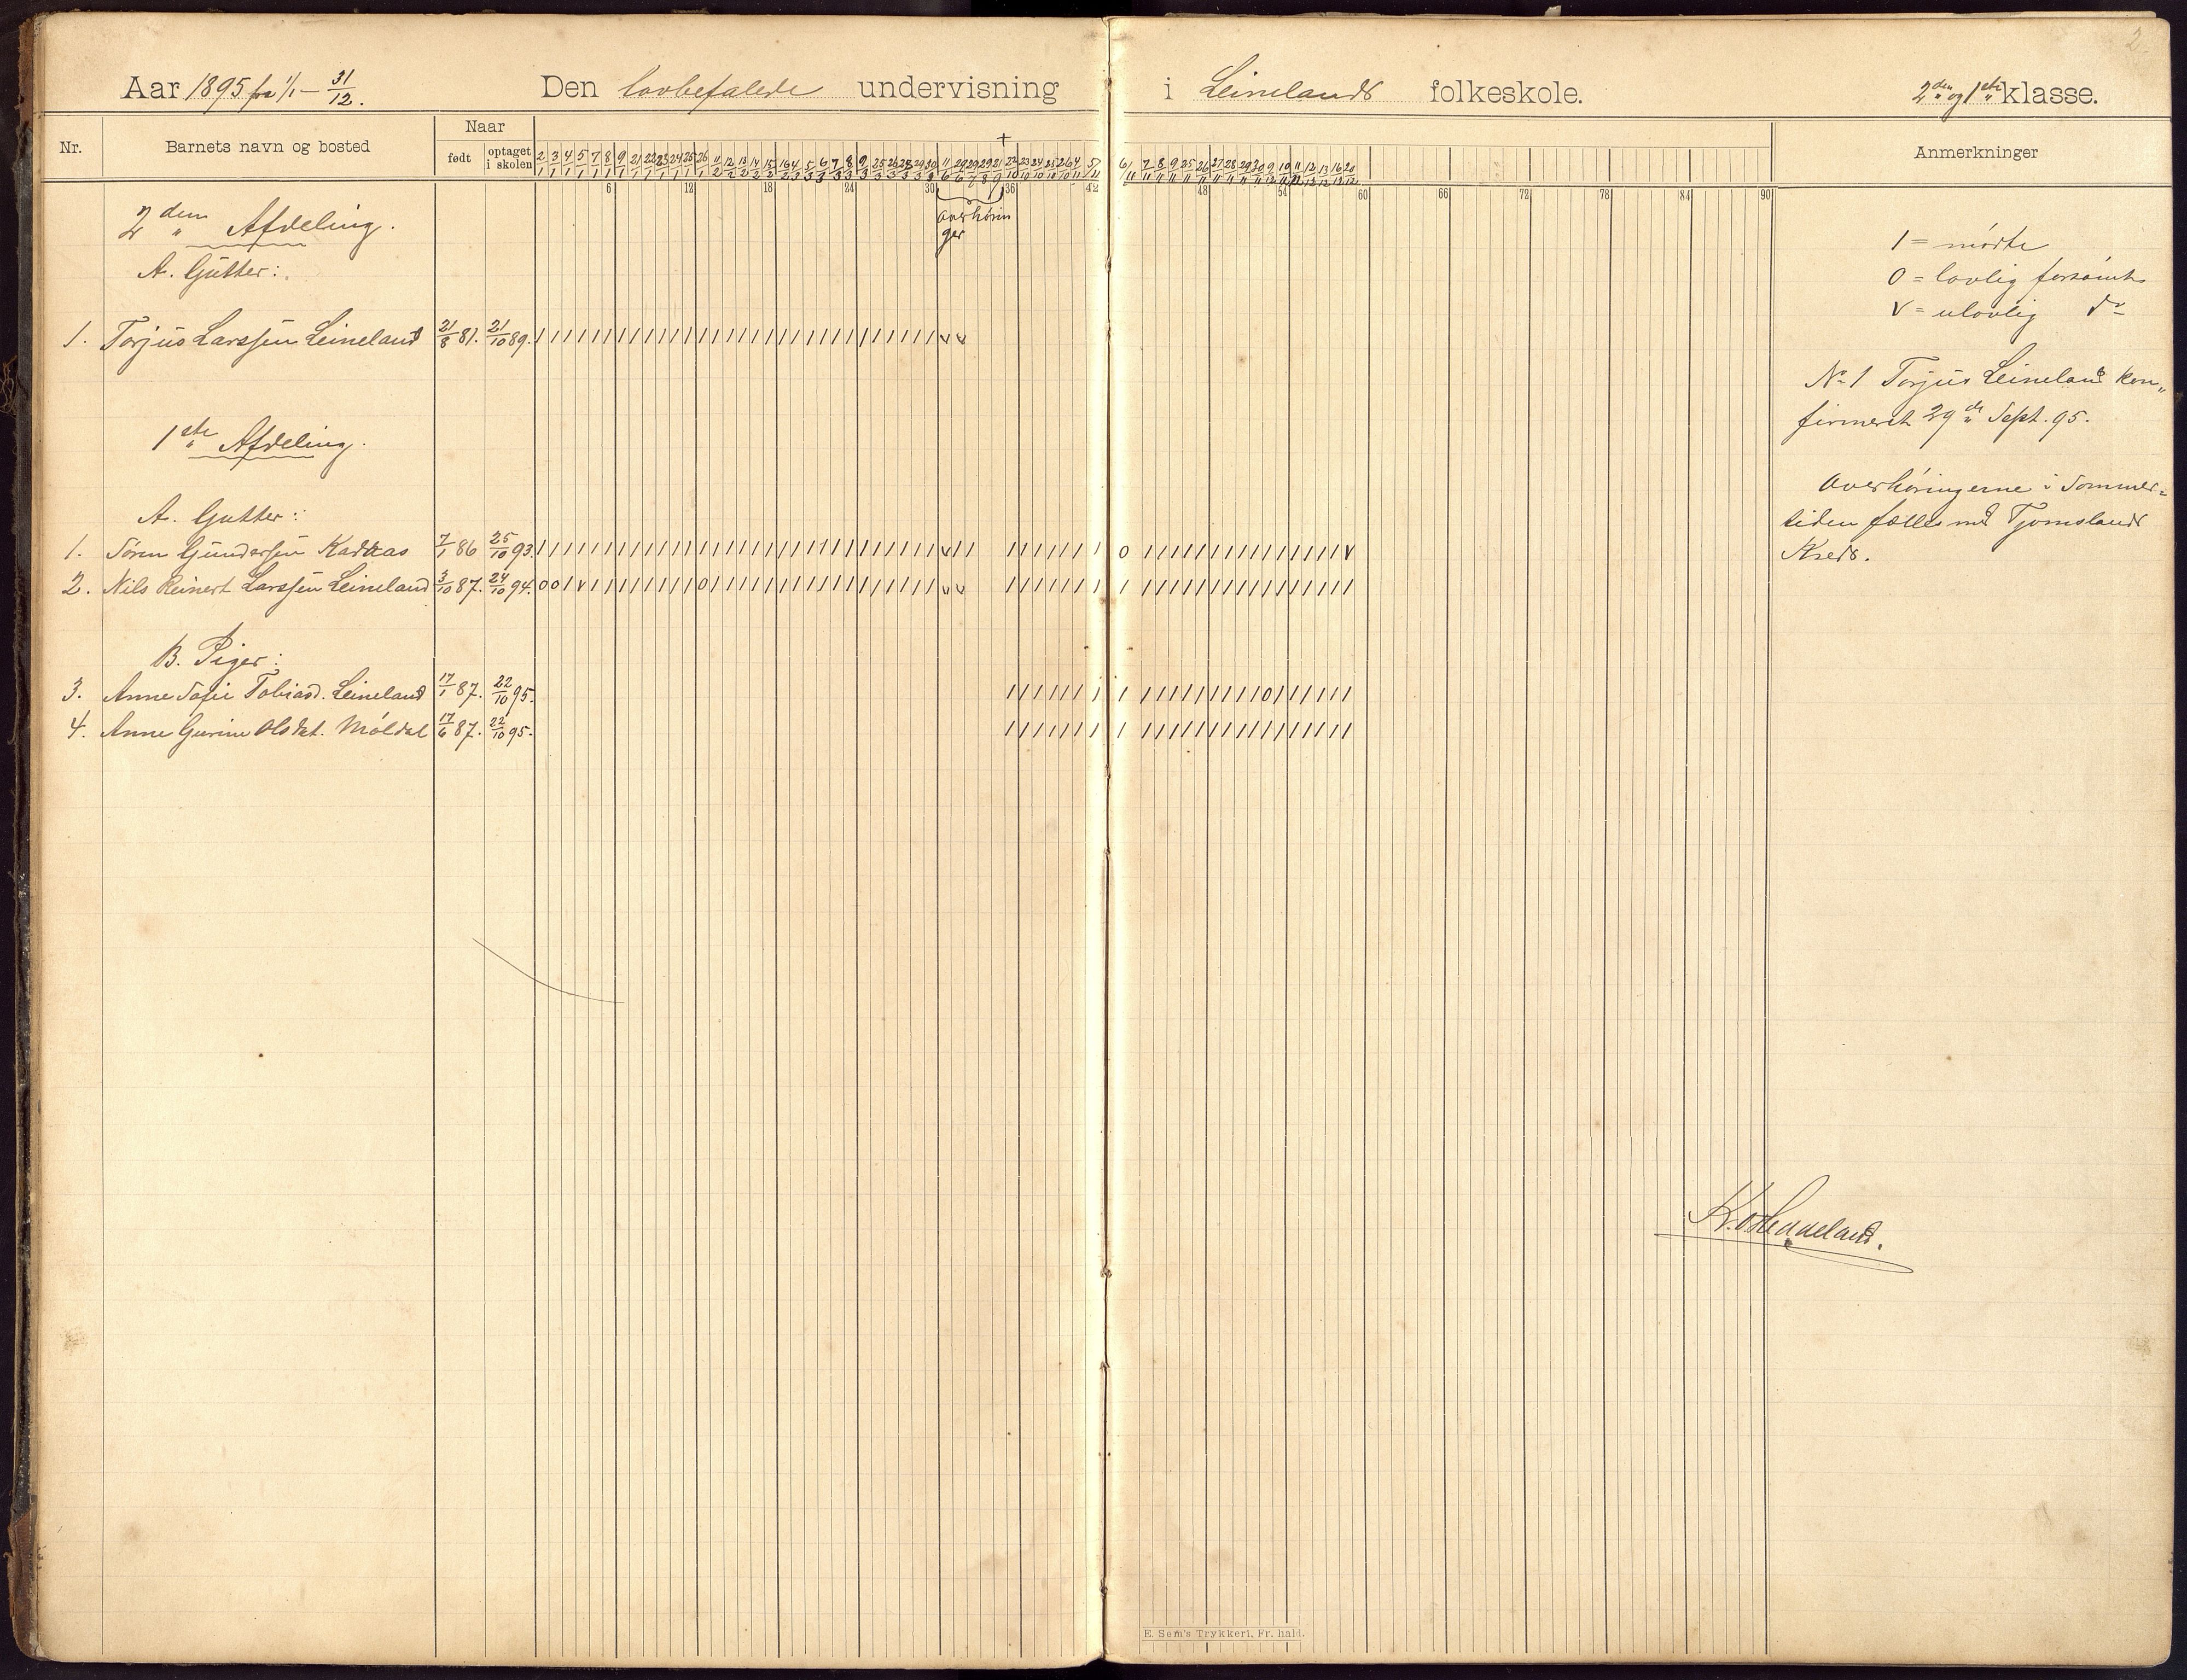 2
Aar 1895 fra 1/1 – 31/12. Den lovbefalede undervisning i Leinelands folkeskole. 2den og 1ste klasse.
Nr. Barnets navn og bosted Naar født optaget i skolen Anmerkninger
6 12 18 24 30 36 42 48 54 60 66 72 78 84 90
Overhørin
ger
2den Afdeling.
A. Gutter:
1. Torjus Larssen Leineland 21/8 81. 21/10 89.
1ste Afdeling.
A. Gutter:
1. Søren Gundersen 7/1 86 25/10 93.
2. Nils Reinert Larssen Leineland 3/10 87. 24/10 94.
B. Piger:
3. Anne Sofie Tobiasd. Leineland 17/1 87. 22/10 95.
4. Anne Gurine Olsdat. Møldal 17/6 87. 22/10 95.
1 = mødte
0 = lovlig forsømt
v = ulovlig do
No 1 Torjus Leineland kon„
firmeret 29de Sept. 95.
Overhøringerne i Sommer=
tiden fælles med Tjomslands
Kreds.
K. O. Heddeland.
E. Sem's Trykkeri, Fr. hald.